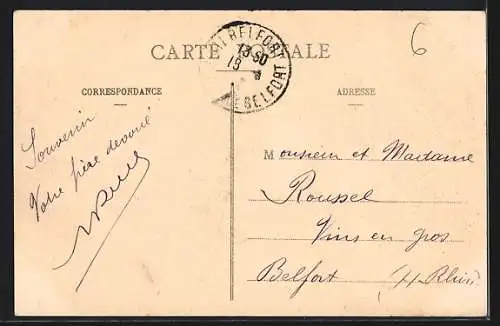 CARTE POSTALE
BELFORT
13 30
BELFORT
6
CORRESPONDANCE
ADRESSE
Souvenir
Votre frère dévoué
Monsieur et Madame
Roussel
Vins en gros
Belfort Ht Rhin